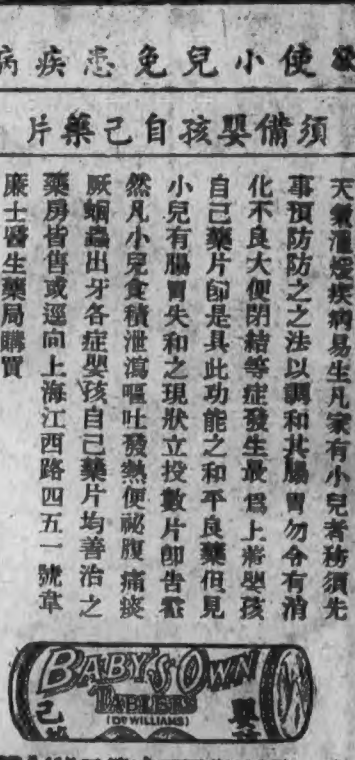 欲使小兒免患疾病
須備嬰孩自己藥片
天氣溫煖疾病易生凡家有小兒者務須先
事預防防之之法以調和其腸胃勿令有消
化不良大便閉結等症發生最爲上着嬰孩
自己藥片卽是具此功能之和平良藥但見
小兒有腸胃失和之現狀立投數片卽告霍
然凡小兒食積泄瀉嘔吐發熱便祕腹痛痰
厥蛔蟲出牙各症嬰孩自己藥片均善治之
藥房皆售或逕向上海江西路四五一號韋
廉士醫生藥局購買
BABY'S OWN
TABLETS
(DR WILLIAMS)
嬰孩
己